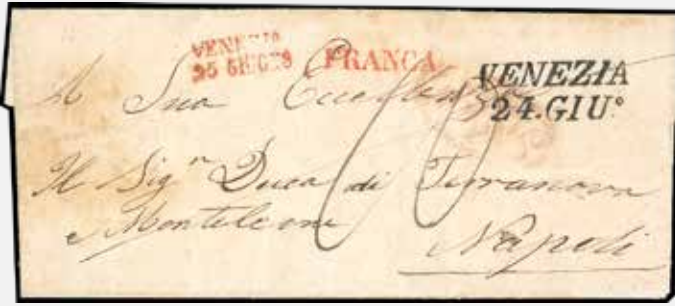 VENEZIA
25 GIUGNO
FRANCA
VENEZIA
24.GIU°
A Sua Eccellenza
Il Sig.r Duca di Terranova
e Monteleone
Napoli